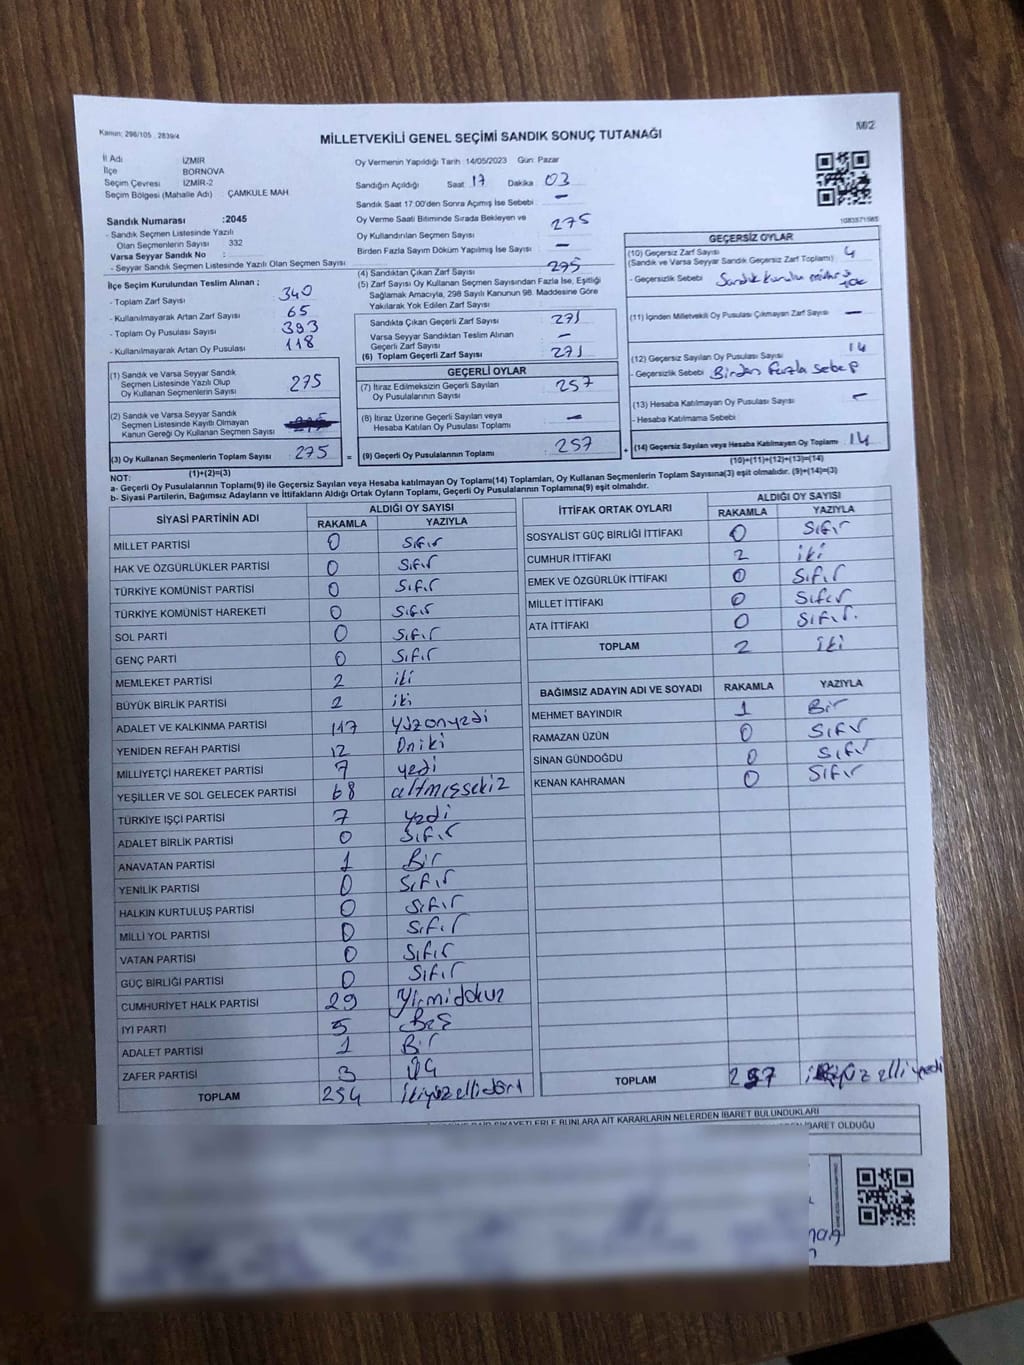 Kanun; 298/105 , 2839/4
M02
MİLLETVEKİLİ GENEL SEÇİMİ SANDIK SONUÇ TUTANAĞI
İl Adı İZMİR
İlçe BORNOVA
Seçim Çevresi İZMİR-2
Seçim Bölgesi (Mahalle Adı) ÇAMKULE MAH
Sandık Numarası :2045
- Sandık Seçmen Listesinde Yazılı
Olan Seçmenlerin Sayısı : 332
Varsa Seyyar Sandık No :
- Seyyar Sandık Seçmen Listesinde Yazılı Olan Seçmen Sayısı :
İlçe Seçim Kurulundan Teslim Alınan ;
- Toplam Zarf Sayısı : 340
- Kullanılmayarak Artan Zarf Sayısı : 65
- Toplam Oy Pusulası Sayısı : 393
- Kullanılmayarak Artan Oy Pusulası : 118
(1) Sandık ve Varsa Seyyar Sandık
Seçmen Listesinde Yazılı Olup
Oy Kullanan Seçmenlerin Sayısı 275
(2) Sandık ve Varsa Seyyar Sandık
Seçmen Listesinde Kayıtlı Olmayan
Kanun Gereği Oy Kullanan Seçmen Sayısı
(3) Oy Kullanan Seçmenlerin Toplam Sayısı : 275
(1)+(2)=(3)
Oy Vermenin Yapıldığı Tarih :14/05/2023 Gün: Pazar
Sandığın Açıldığı Saat : 17 Dakika : 03
Sandık Saat 17:00'den Sonra Açımış İse Sebebi : –
Oy Verme Saati Bitiminde Sırada Bekleyen ve
Oy Kullandırılan Seçmen Sayısı : 275
Birden Fazla Sayım Döküm Yapılmış İse Sayısı : –
(4) Sandıktan Çıkan Zarf Sayısı : 275
(5) Zarf Sayısı Oy Kullanan Seçmen Sayısından Fazla İse, Eşitliği
Sağlamak Amacıyla, 298 Sayılı Kanunun 98. Maddesine Göre
Yakılarak Yok Edilen Zarf Sayısı :
Sandıkta Çıkan Geçerli Zarf Sayısı : 271
Varsa Seyyar Sandıktan Teslim Alınan
Geçerli Zarf Sayısı : –
(6) Toplam Geçerli Zarf Sayısı : 271
GEÇERLİ OYLAR
(7) İtiraz Edilmeksizin Geçerli Sayılan
Oy Pusulalarının Sayısı : 257
(8) İtiraz Üzerine Geçerli Sayılan veya
Hesaba Katılan Oy Pusulası Toplamı : –
= (9) Geçerli Oy Pusulalarının Toplamı : 257
1083571565
GEÇERSİZ OYLAR
(10) Geçersiz Zarf Sayısı : 4
(Sandık ve Varsa Seyyar Sandık Geçersiz Zarf Toplamı)
- Geçersizlik Sebebi : Sandık kurulu mührü yok
(11) İçinden Milletvekili Oy Pusulası Çıkmayan Zarf Sayısı : –
(12) Geçersiz Sayılan Oy Pusulası Sayısı : 14
- Geçersizlik Sebebi : Birden fazla sebep
(13) Hesaba Katılmayan Oy Pusulası Sayısı : –
- Hesaba Katılmama Sebebi :
+ (14) Geçersiz Sayılan veya Hesaba Katılmayan Oy Toplamı : 14
(10)+(11)+(12)+(13)=(14)
NOT:
a- Geçerli Oy Pusulalarının Toplamı(9) ile Geçersiz Sayılan veya Hesaba katılmayan Oy Toplamı(14) Toplamları, Oy Kullanan Seçmenlerin Toplam Sayısına(3) eşit olmalıdır. (9)+(14)=(3)
b- Siyasi Partilerin, Bağımsız Adayların ve İttifakların Aldığı Ortak Oyların Toplamı, Geçerli Oy Pusulalarının Toplamına(9) eşit olmalıdır.
SİYASİ PARTİNİN ADI ALDIĞI OY SAYISI
RAKAMLA YAZIYLA
MİLLET PARTİSİ 0 Sıfır
HAK VE ÖZGÜRLÜKLER PARTİSİ 0 Sıfır
TÜRKİYE KOMÜNİST PARTİSİ 0 Sıfır
TÜRKİYE KOMÜNİST HAREKETİ 0 Sıfır
SOL PARTİ 0 Sıfır
GENÇ PARTİ 0 Sıfır
MEMLEKET PARTİSİ 2 iki
BÜYÜK BİRLİK PARTİSİ 2 iki
ADALET VE KALKINMA PARTİSİ 117 Yüzonyedi
YENİDEN REFAH PARTİSİ 12 Oniki
MİLLİYETÇİ HAREKET PARTİSİ 7 yedi
YEŞİLLER VE SOL GELECEK PARTİSİ 68 altmışsekiz
TÜRKİYE İŞÇİ PARTİSİ 7 yedi
ADALET BİRLİK PARTİSİ 0 Sıfır
ANAVATAN PARTİSİ 1 Bir
YENİLİK PARTİSİ 0 Sıfır
HALKIN KURTULUŞ PARTİSİ 0 Sıfır
MİLLİ YOL PARTİSİ 0 Sıfır
VATAN PARTİSİ 0 Sıfır
GÜÇ BİRLİĞİ PARTİSİ 0 Sıfır
CUMHURİYET HALK PARTİSİ 29 Yirmidokuz
İYİ PARTİ 5 Beş
ADALET PARTİSİ 1 Bir
ZAFER PARTİSİ 3 Üç
TOPLAM 254 İkiyüzellidört
İTTİFAK ORTAK OYLARI ALDIĞI OY SAYISI
RAKAMLA YAZIYLA
SOSYALİST GÜÇ BİRLİĞİ İTTİFAKI 0 Sıfır
CUMHUR İTTİFAKI 2 iki
EMEK VE ÖZGÜRLÜK İTTİFAKI 0 Sıfır
MİLLET İTTİFAKI 0 Sıfır
ATA İTTİFAKI 0 Sıfır.
TOPLAM 2 iki
BAĞIMSIZ ADAYIN ADI VE SOYADI RAKAMLA YAZIYLA
MEHMET BAYINDIR 1 Bir
RAMAZAN ÜZÜN 0 Sıfır
SİNAN GÜNDOĞDU 0 Sıfır
KENAN KAHRAMAN 0 Sıfır
TOPLAM 257 ikiyüzelliyedi
ŞİKAYETLERLE BUNLARA AİT KARARLARIN NELERDEN İBARET BULUNDUKLARI
İBARET OLDUĞU